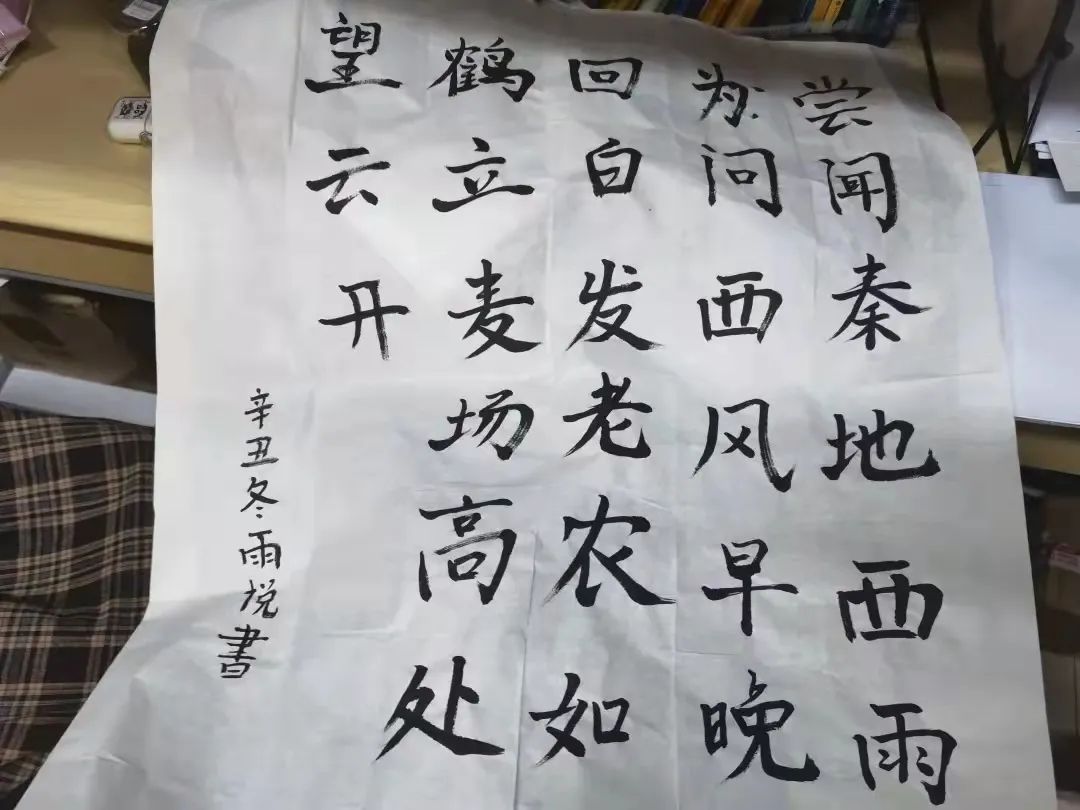 尝闻秦地西雨
为问西风早晚
回白发老农如
鹤立麦场高处
望云开
辛丑冬雨悦書